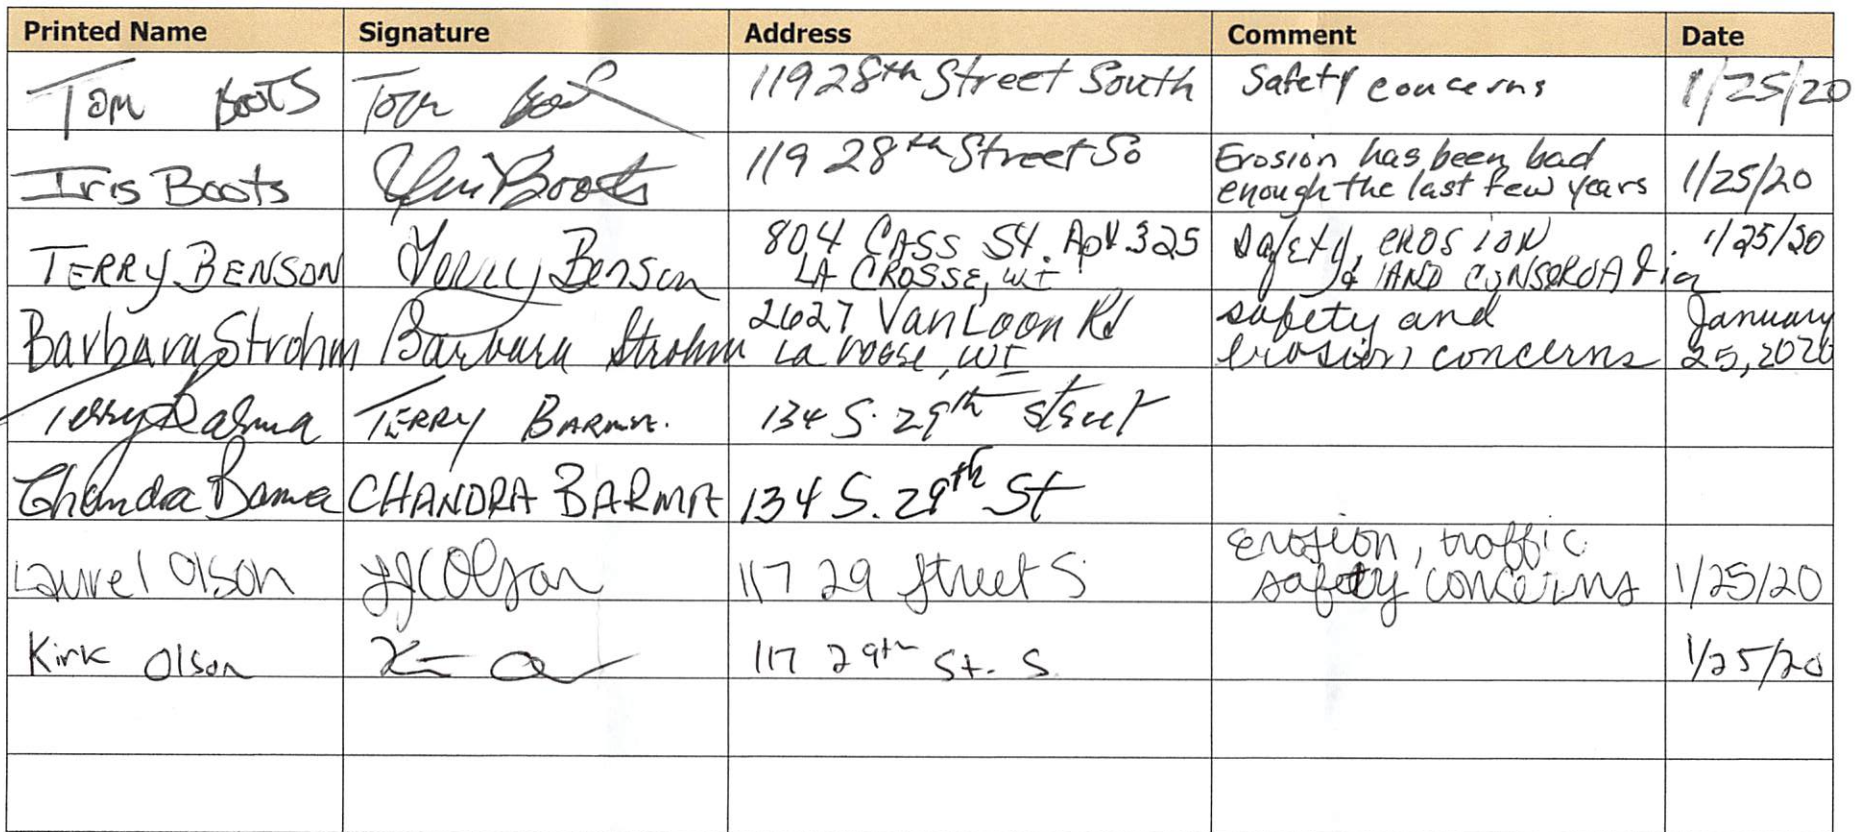 Printed Name Signature Address Comment Date
Tom Boots Tom 119 28th Street South Safety concerns 1/25/20
Iris Boots Iris Boots 119 28th Street So Erosion has been bad
enough the last few years 1/25/20
TERRY BENSON Terry Benson 804 CASS St. Apt 325
LA CROSSE, WI safety, EROSION
& LAND CONSERVATION 1/25/20
Barbara Strohm Barbara Strohm 2627 VanLoon Rd
La Crosse, WI safety and
erosion concerns January
25, 2020
Terry Barma TERRY BARMA. 134 S. 29th Street
Chandra Barma CHANDRA BARMA 134 S. 29th St
Laurel Olson Olson 117 29 Street S Erosion, traffic
safety concerns 1/25/20
Kirk Olson 117 29th St. S. 1/25/20